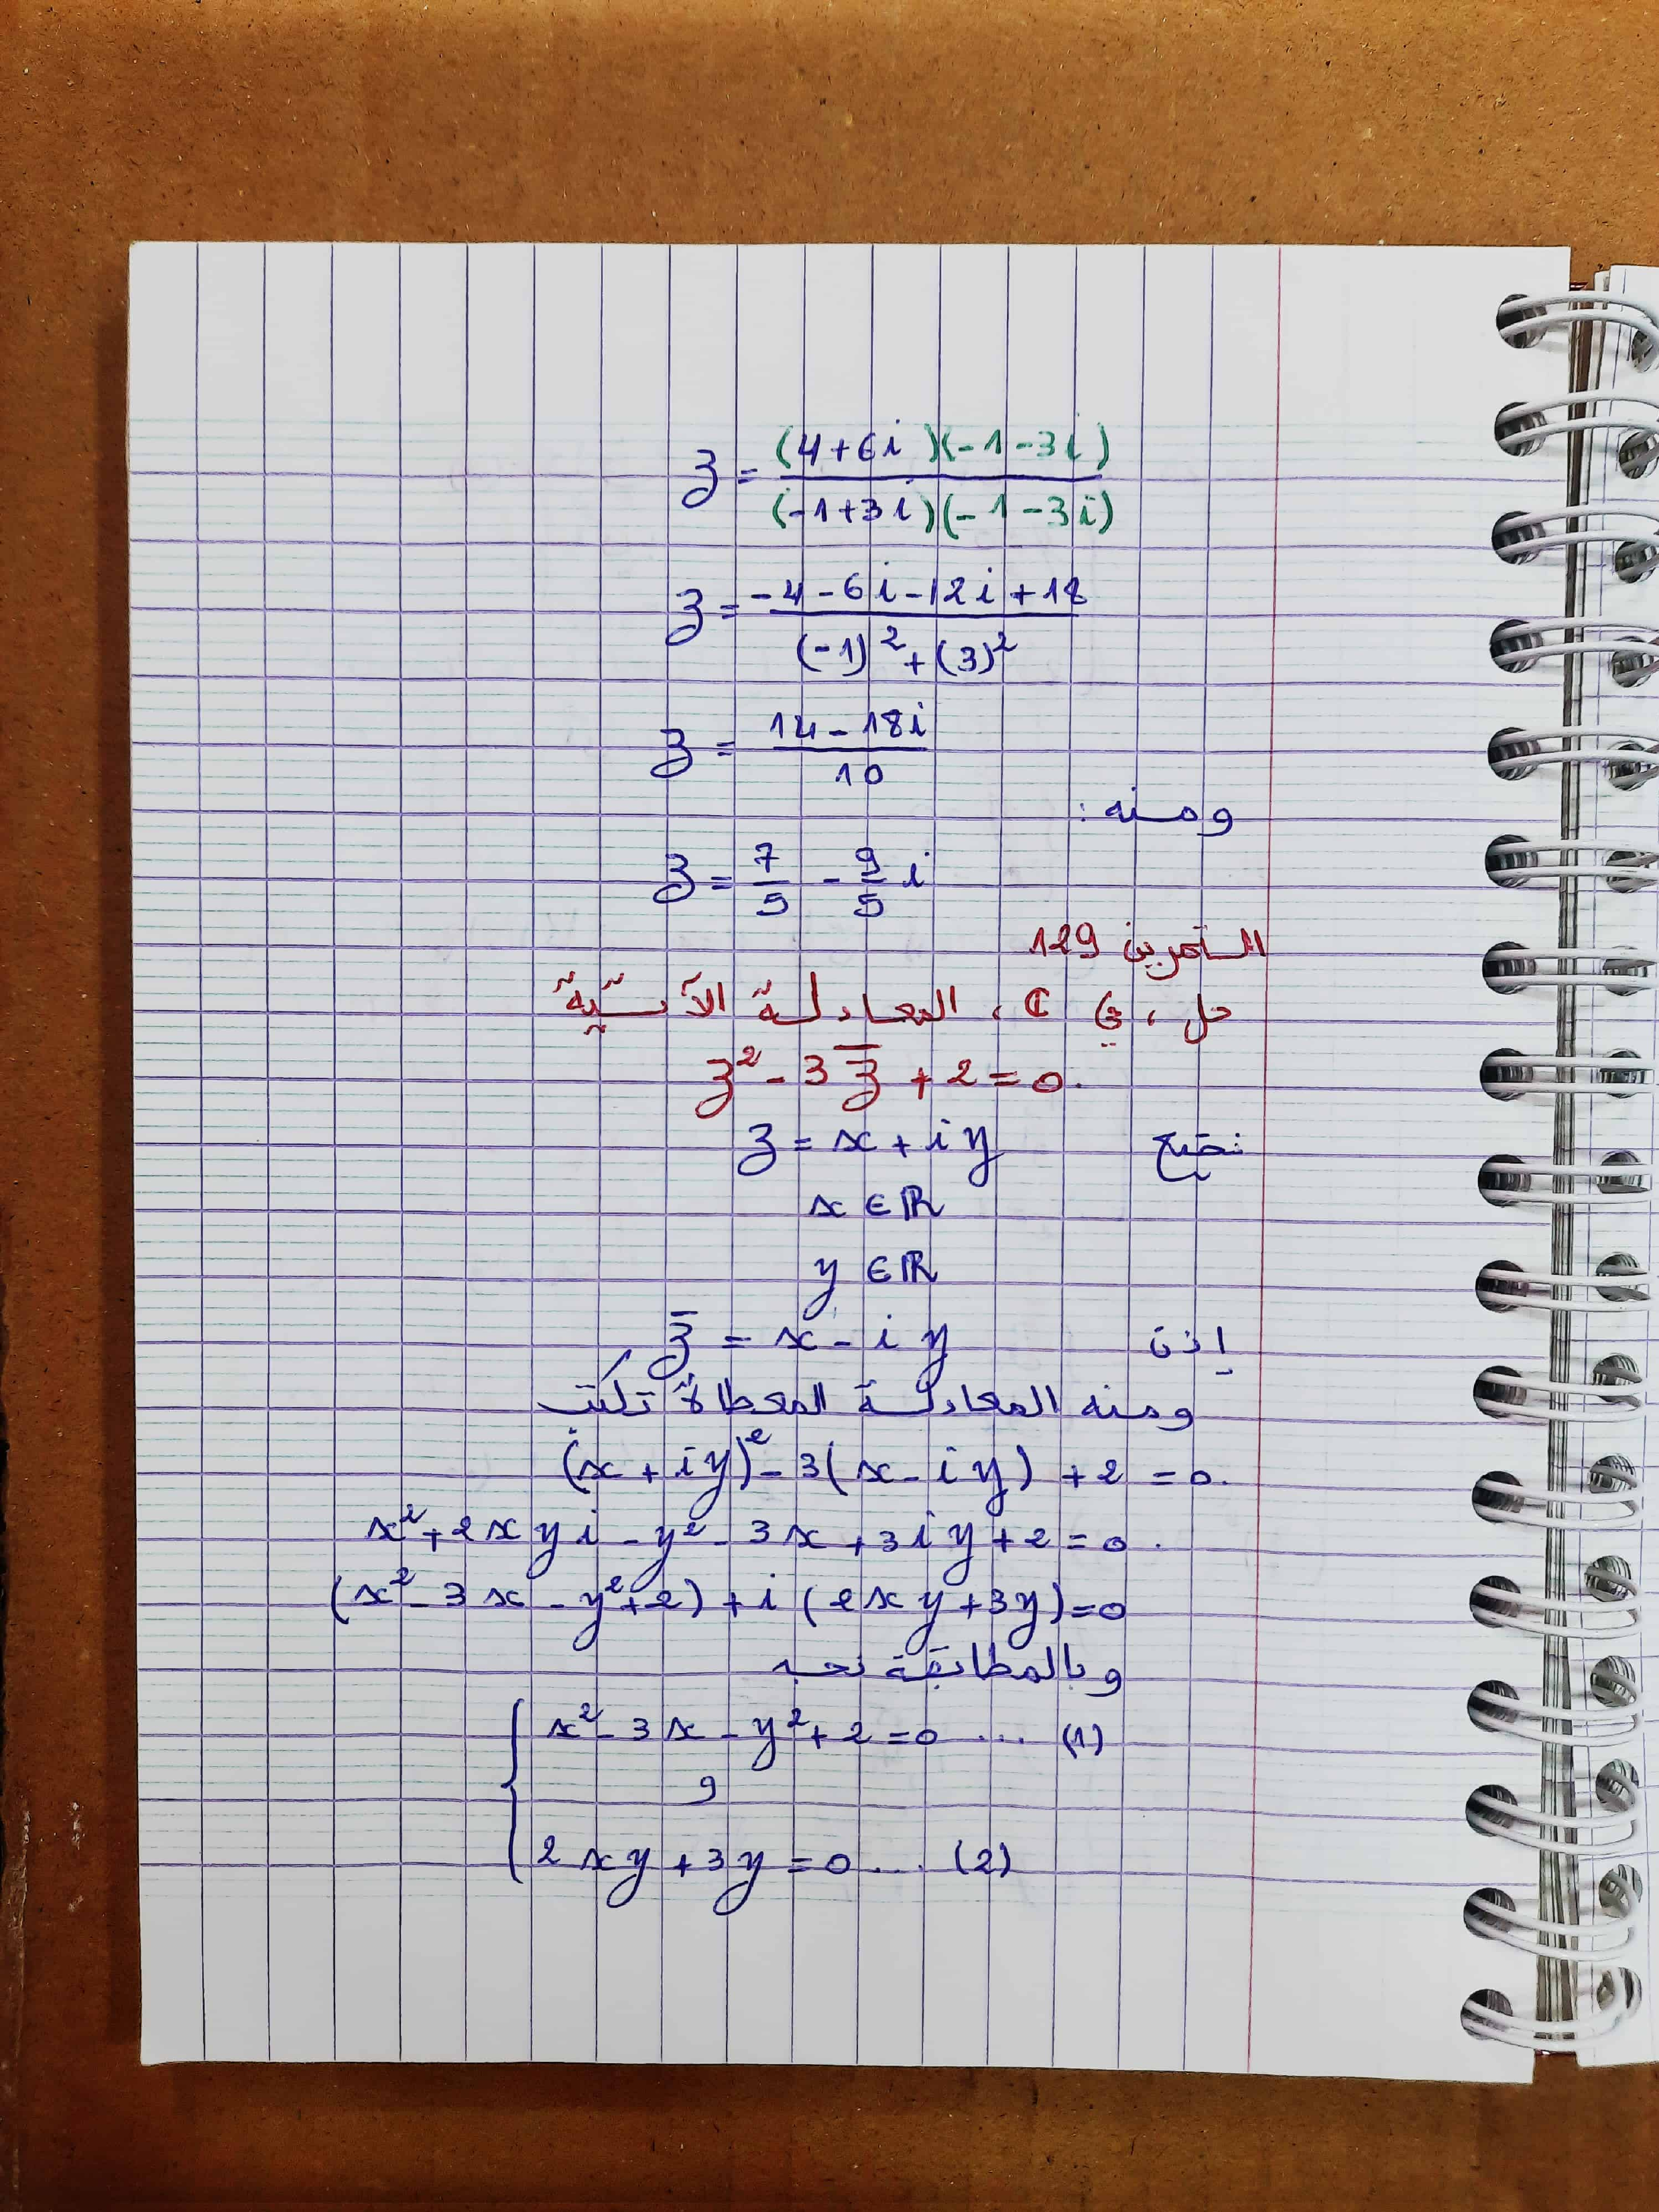 z = (4+6i)(-1-3i) / (-1+3i)(-1-3i)
z = -4-6i-12i+18 / (-1)² + (3)²
z = 14-18i / 10
ومنه :
z = 7/5 - 9/5 i
التمرين 129
حل ، في ℂ ، المعادلة الآتية
z² - 3z̄ + 2 = 0.
نضع z = x + iy
x ∈ ℝ
y ∈ ℝ
إذن z̄ = x - iy
ومنه المعادلة المعطاة تكتب
(x + iy)² - 3(x - iy) + 2 = 0.
x² + 2xyi - y² - 3x + 3iy + 2 = 0.
(x² - 3x - y² + 2) + i(2xy + 3y) = 0
وبالمطابقة نجد
x² - 3x - y² + 2 = 0 ... (1)
و
2xy + 3y = 0 ... (2)